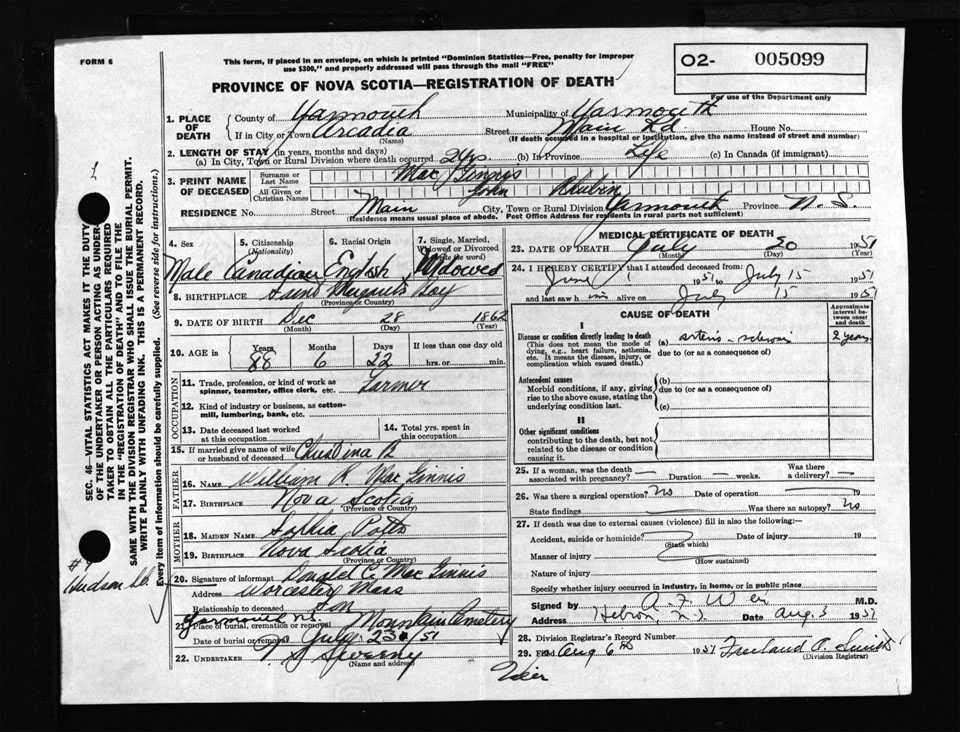 FORM 6
This form, if placed in an envelope, on which is printed "Dominion Statistics—Free, penalty for improper
use $300," and properly addressed will pass through the mail "FREE"
PROVINCE OF NOVA SCOTIA—REGISTRATION OF DEATH
O2- 005099
For use of the Department only
1. PLACE OF DEATH
County of Yarmouth Municipality of Yarmouth
If in City or Town Arcadia Street Main Rd House No.
(Name) (If death occurred in a hospital or institution, give the name instead of street and number)
2. LENGTH OF STAY (in years, months and days)
(a) In City, Town or Rural Division where death occurred 2 yrs. (b) In Province Life (c) In Canada (if immigrant)
3. PRINT NAME OF DECEASED
Surname or Last Name Mac Ginnis
All Given or Christian Names John Rhubin
RESIDENCE No. Street Main City, Town or Rural Division Yarmouth Province N. S.
(Residence means usual place of abode. Post Office Address for residents in rural parts not sufficient)
4. Sex 5. Citizenship (Nationality) 6. Racial Origin 7. Single, Married, Widowed or Divorced (write the word)
Male Canadian English Widowed
8. BIRTHPLACE Bay
(Province or Country)
9. DATE OF BIRTH Dec 28 1862
(Month) (Day) (Year)
10. AGE in Years Months Days If less than one day old
88 6 22 hrs. or min.
OCCUPATION
11. Trade, profession, or kind of work as spinner, teamster, office clerk, etc. Farmer
12. Kind of industry or business, as cotton-mill, lumbering, bank, etc.
13. Date deceased last worked at this occupation 14. Total yrs. spent in this occupation
15. If married give name of wife or husband of deceased Christina B
FATHER
16. Name William R. Mac Ginnis
17. Birthplace Nova Scotia
(Province or Country)
MOTHER
18. MAIDEN NAME Sophia Potts
19. BIRTHPLACE Nova Scotia
(Province or Country)
20. Signature of informant Donald C. Mac Ginnis
Address Worcester Mass
Relationship to deceased Son
21. Place of burial, cremation or removal Yarmouth N.S. Mountain Cemetery
Date of burial or removal July 23/51
22. UNDERTAKER Sweeny
(Name and address)
MEDICAL CERTIFICATE OF DEATH
23. DATE OF DEATH July 20 1951
(Month) (Day) (Year)
24. I HEREBY CERTIFY that I attended deceased from:
June 1951 to July 15 1951
and last saw him alive on July 15 1951
CAUSE OF DEATH
Approximate interval between onset and death
I
Disease or condition directly leading to death (a) 2 years
(This does not mean the mode of due to (or as a consequence of)
dying, e.g., heart failure, asthenia,
etc. It means the disease, injury, or
complication which caused death.)
Antecedent causes (b)
Morbid conditions, if any, giving due to (or as a consequence of)
rise to the above cause, stating the
underlying condition last. (c)
II
Other significant conditions
contributing to the death, but not
related to the disease or condition
causing it.
25. If a woman, was the death associated with pregnancy? — Duration — weeks. Was there a delivery? —
26. Was there a surgical operation? No Date of operation 19
State findings Was there an autopsy? No
27. If death was due to external causes (violence) fill in also the following:—
Accident, suicide or homicide? Date of injury 19
(State which)
Manner of injury
(How sustained)
Nature of injury
Specify whether injury occurred in industry, in home, or in public place
Signed by A. F. Weir M.D.
Address Hebron, N.S. Date Aug 3 1951
28. Division Registrar's Record Number
29. Filed Aug 6th 1951 Freeland A. Smith
(Division Registrar)
Weir
SEC. 46—VITAL STATISTICS ACT MAKES IT THE DUTY
OF THE UNDERTAKER OR PERSON ACTING AS UNDER-
TAKER TO OBTAIN ALL THE PARTICULARS REQUIRED
IN THE "REGISTRATION OF DEATH" AND TO FILE THE
SAME WITH THE DIVISION REGISTRAR WHO SHALL ISSUE THE BURIAL PERMIT.
WRITE PLAINLY WITH UNFADING INK. THIS IS A PERMANENT RECORD.
Every item of information should be carefully supplied. (See reverse side for instructions.)